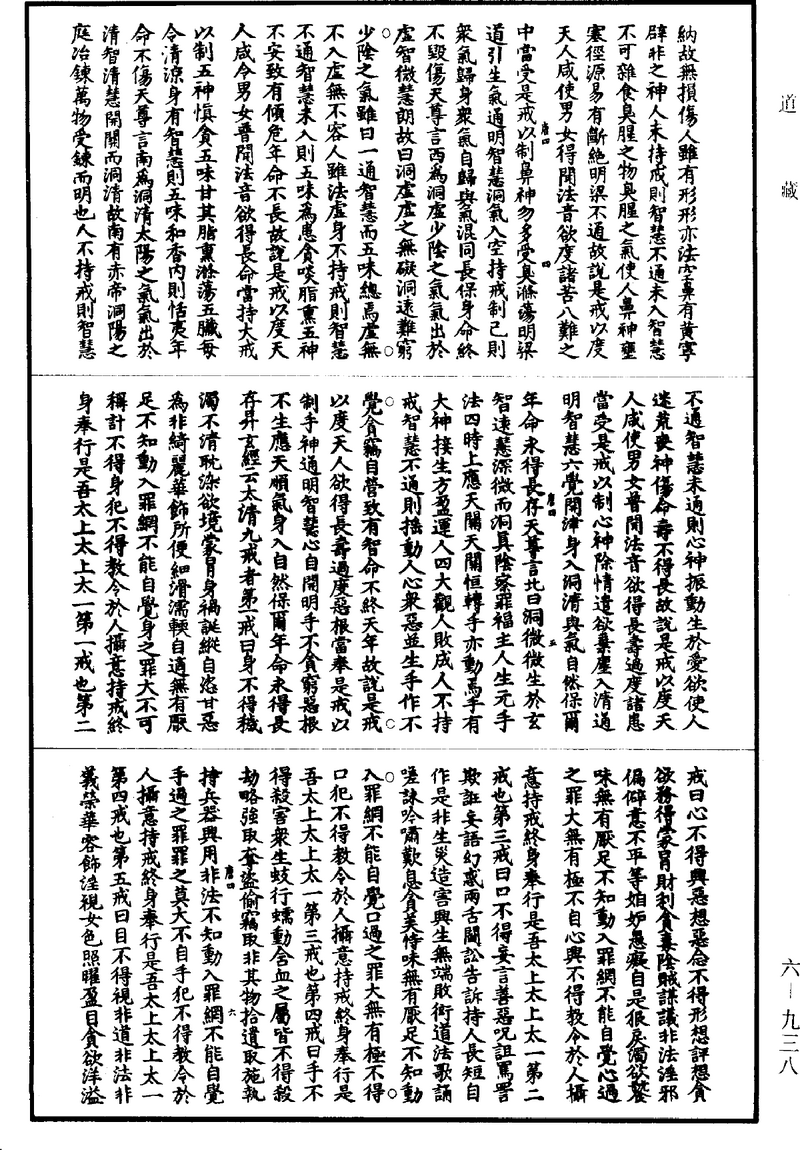 道藏
納故無損傷人雖有形形亦法空鼻有黃寧
辟非之神人未持戒則智慧不通未入智慧
不可雜食臭腥之物臭腥之氣使人鼻神壅
塞徑源易有斷絕明梁不通故說是戒以度
天人咸使男女得聞法音欲度諸苦八難之
中當受是戒以制鼻神勿多受臭滌蕩明梁
道引生氣通明智慧洞氣入空持戒制己則
眾氣歸身眾氣自歸與氣混同長保身命終
不毀傷天尊言西為洞虛少陰之氣氣出於
虛智微慧朗故曰洞虛虛之無礙洞遠難窮
少陰之氣雖曰一通智慧而五味總焉虛無
不入虛無不容人雖法虛身不持戒則智慧
不通智慧未入則五味為患貪啖脂熏五神
不安致有傾危年命不長故說是戒以度天
人咸令男女普聞法音欲得長命當持大戒
以制五神慎貪五味甘其脂熏滌蕩五臟每
令清涼身有智慧則五味和香內則恬夷年
命不傷天尊言南為洞清太陽之氣氣出於
清智清慧開開而洞清故南有赤帝洞陽之
庭冶鍊萬物受鍊而明也人不持戒則智慧
不通智慧未通則心神振動生於愛欲使人
迷荒喪神傷命壽不得長故說是戒以度天
人咸使男女普聞法音欲得長壽過度諸患
當受是戒以制心神除情遣欲棄塵入清通
明智慧六覺開津身入洞清與氣自然保爾
年命永得長存天尊言北曰洞微微生於玄
智達慧深微而洞真陰察罪福主人生元手
法四時上應天關天關恒轉手亦動焉手有
大神接生方盈運人四大觀人敗成人不持
戒智慧不通則搖動人心眾惡並生手作不
覺貪竊自營致有智命不終天年故說是戒
以度天人欲得長壽過度惡根當奉是戒以
制手神通明智慧心自開明手不貪窮惡根
不生應天順氣身入自然保爾年命永得長
存昇玄經云太清九戒者第一戒曰身不得穢
濁不清耽染欲境蒙冒身禍誕縱自恣甘惡
為非綺麗華飾所便細滑濡輭自適無有厭
足不知動入罪網不能自覺身之罪大不可
稱計不得身犯不得教令於人攝意持戒終
身奉行是吾太上太上太一第一戒也第二
戒曰心不得興惡想惡念不得形想評想貪
欲務得蒙冒財利貪毒陰賊謀議非法淫邪
偏僻意不平等妲妒愚癡自是很戾濁欲饕
味無有厭足不知動入罪網不能自覺心過
之罪大無有極不自心興不得教令於人攝
意持戒終身奉行是吾太上太上太一第二
戒也第三戒曰口不得妄言善惡呪詛罵詈
欺誑妄語幻惑兩舌鬪訟告訴持人長短自
作是非生災造害興生無端敗術道法歌誦
嗟詠吟嘯歎息貪美恃味無有厭足不知動
入罪網不能自覺口過之罪大無有極不得
口犯不得教令於人攝意持戒終身奉行是
吾太上太上太一第三戒也第四戒曰手不
得殺害眾生蚑行蠕動含血之屬皆不得殺
劫略強取奪盜偷竊取非其物拾遺取施執
持兵器興用非法不知動入罪網不能自覺
手過之罪罪之莫大不自手犯不得教令於
人攝意持戒終身奉行是吾太上太上太一
第四戒也第五戒曰目不得視非道非法非
義榮華容飾淫視女色照曜盈目貪欲洋溢
六-九三八